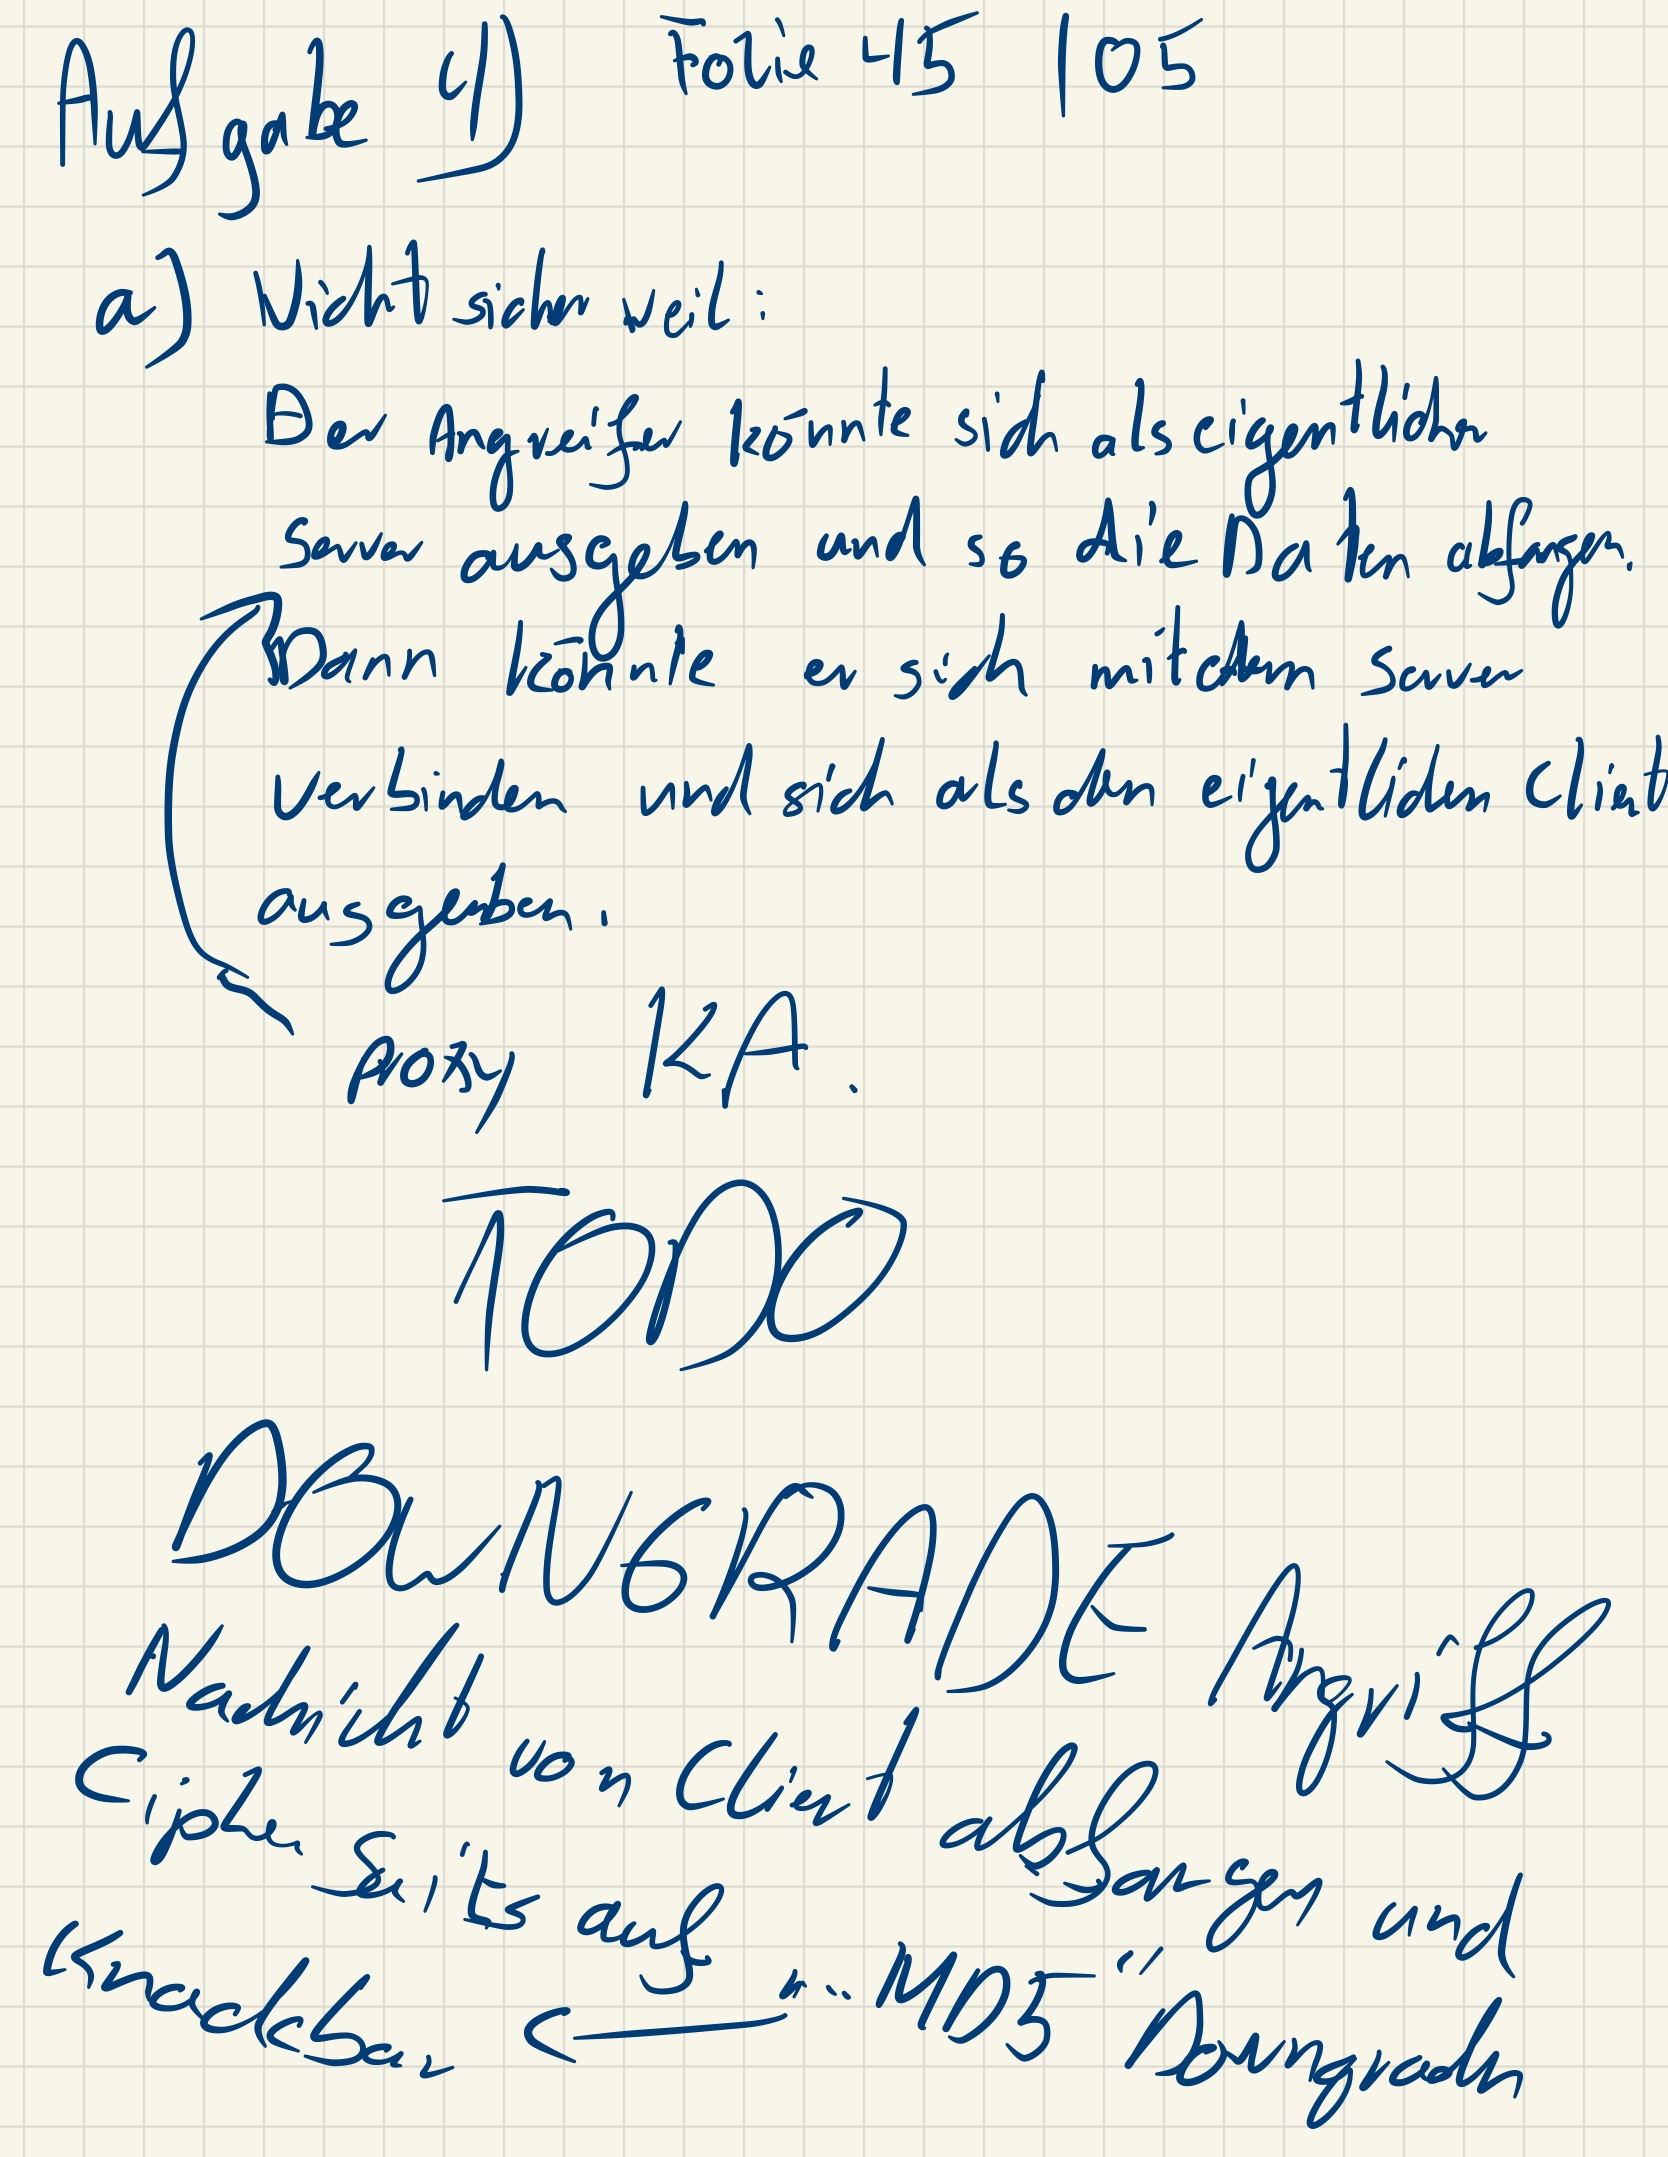 Aufgabe 4) Folie 45 / 105
a) Nicht sicher weil:
Der Angreifer könnte sich als eigentlicher
Server ausgeben und so die Daten abfangen.
Dann könnte er sich mit dem Server
verbinden und sich als den eigentlichen Client
ausgeben.
proxy KA.
TODO
DOWNGRADE Angriff
Nachricht von Client abfangen und
Cipher Suits auf "...MD5" Downgraden
Knackbar